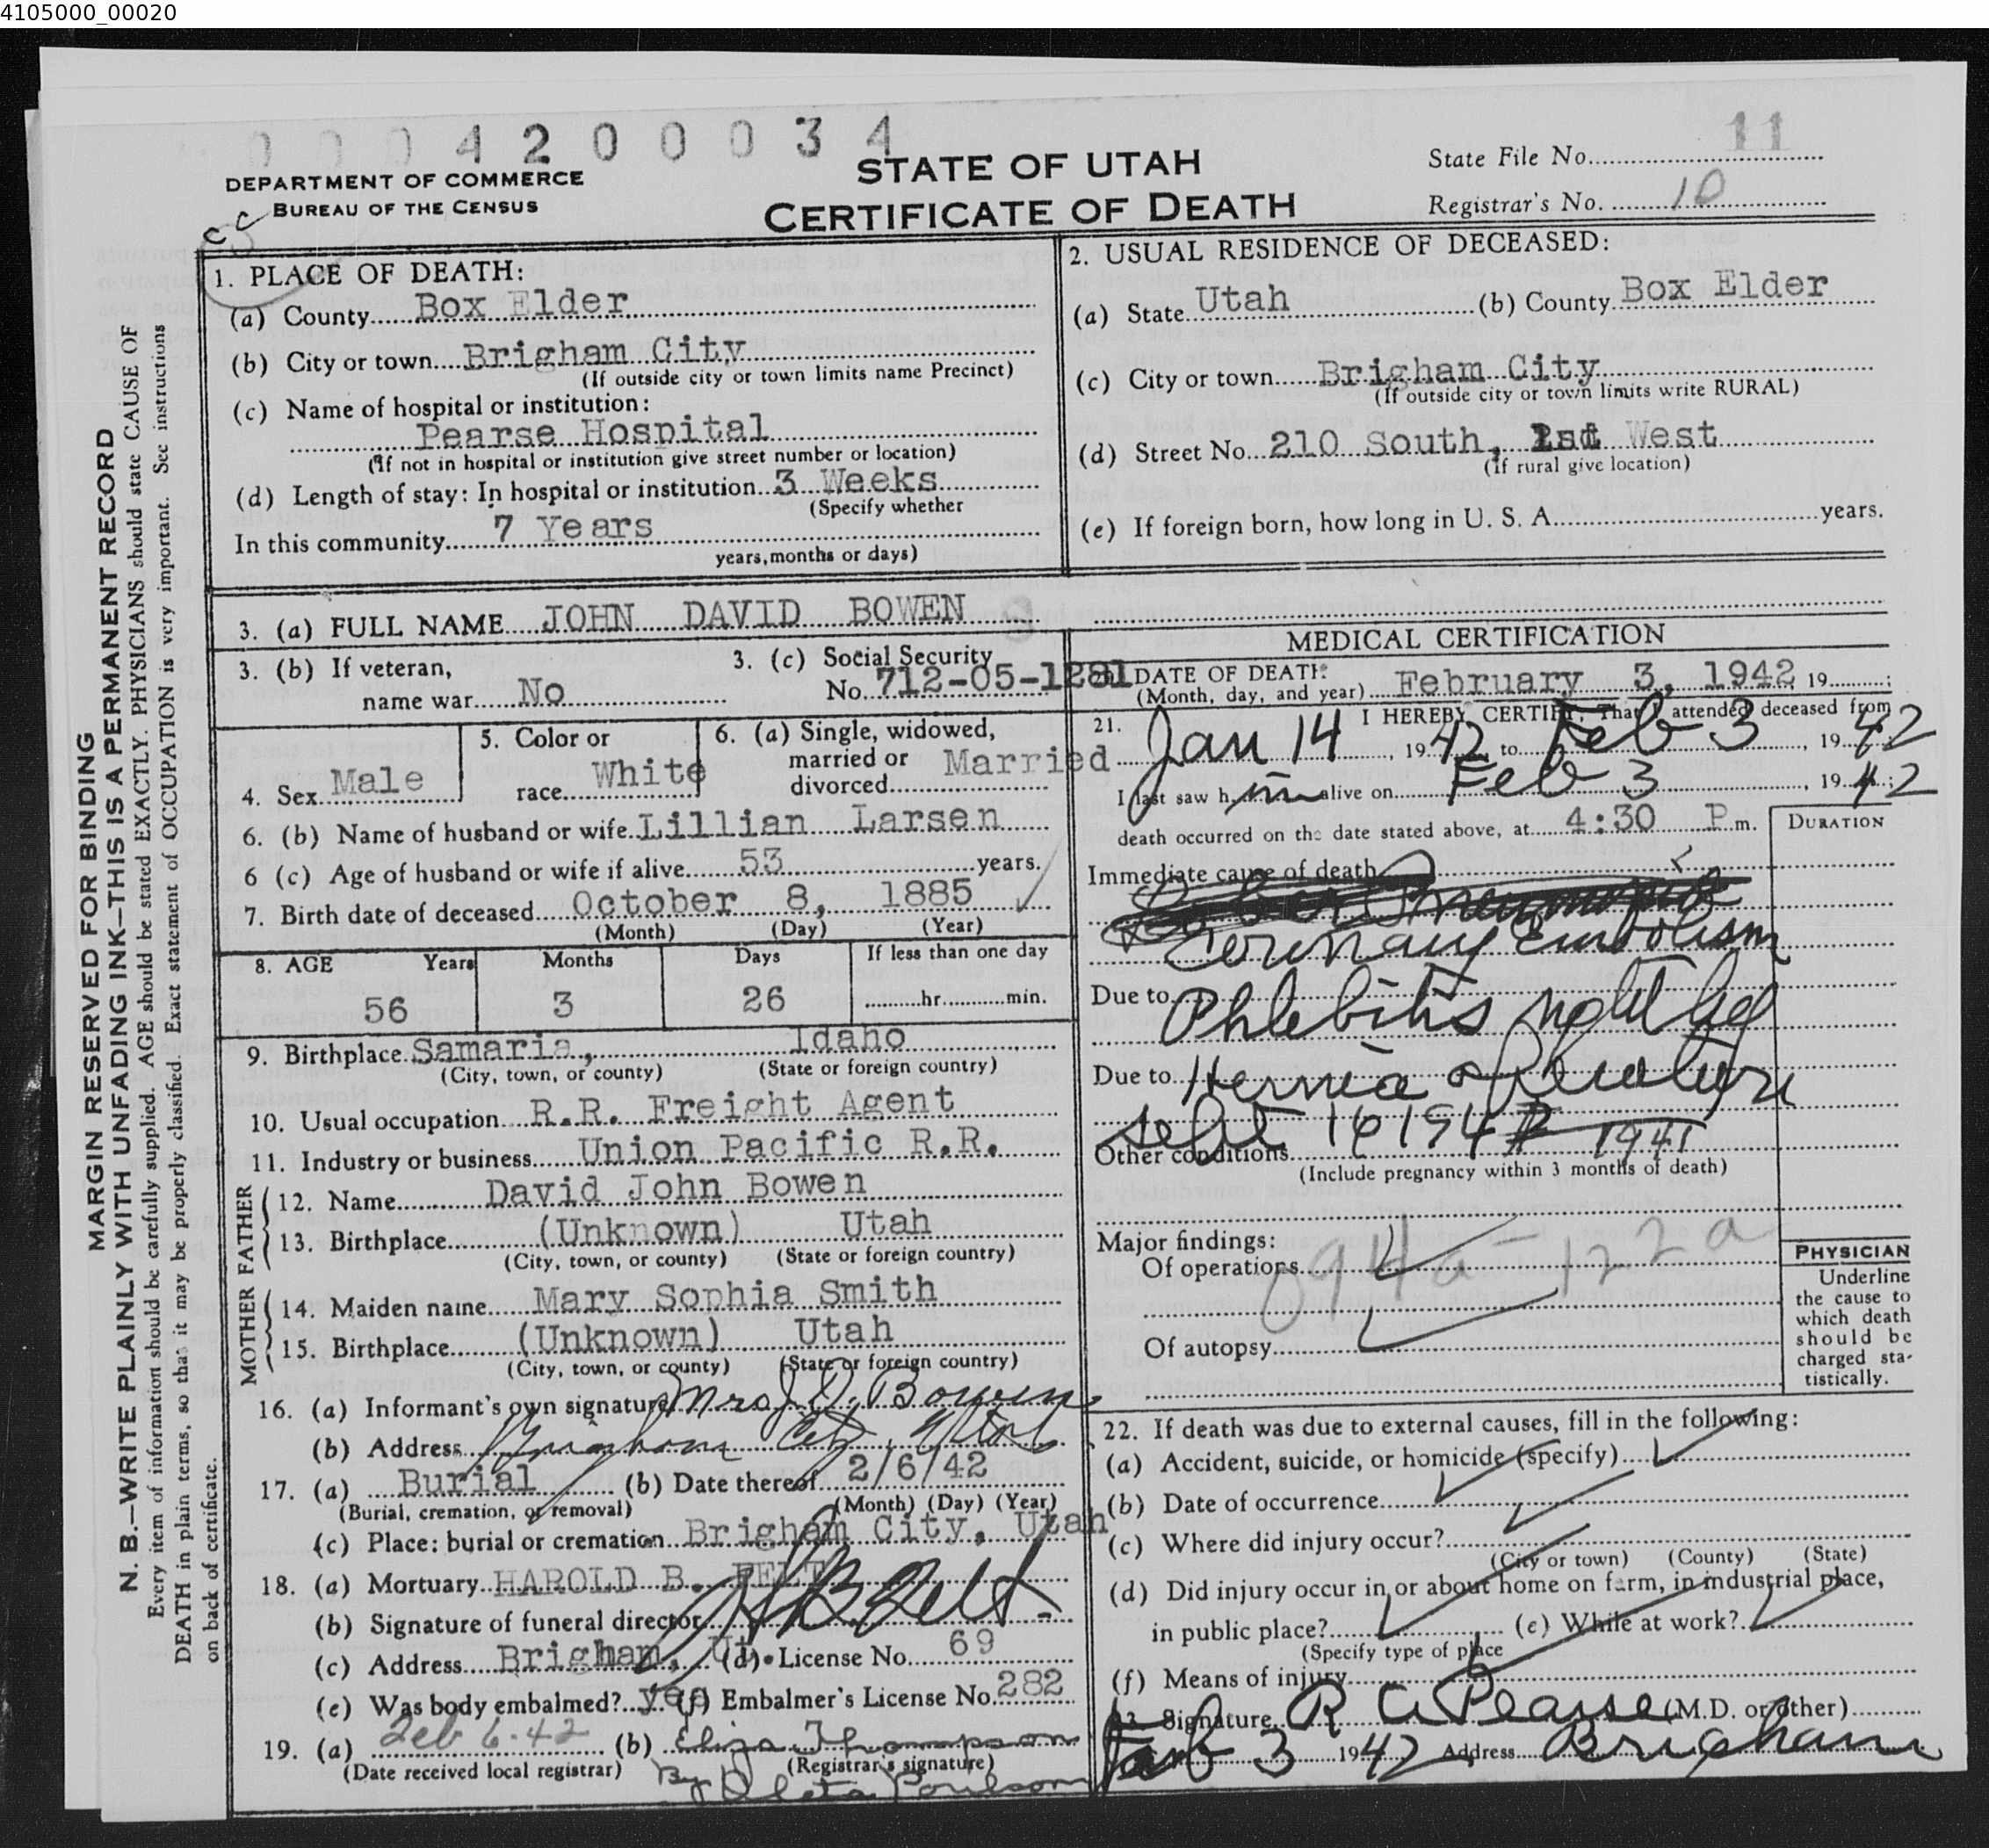 4105000_00020
0 0 0 4 2 0 0 0 3 4
11
DEPARTMENT OF COMMERCE
BUREAU OF THE CENSUS
STATE OF UTAH
CERTIFICATE OF DEATH
State File No.
Registrar's No. 10
cc
1. PLACE OF DEATH:
(a) County Box Elder
(b) City or town Brigham City
(If outside city or town limits name Precinct)
(c) Name of hospital or institution:
Pearse Hospital
(If not in hospital or institution give street number or location)
(d) Length of stay: In hospital or institution 3 Weeks
(Specify whether
In this community 7 Years
years, months or days)
2. USUAL RESIDENCE OF DECEASED:
(a) State Utah (b) County Box Elder
(c) City or town Brigham City
(If outside city or town limits write RURAL)
(d) Street No. 210 South, West
(If rural give location)
(e) If foreign born, how long in U. S. A. years.
3. (a) FULL NAME JOHN DAVID BOWEN
3. (b) If veteran,
name war No
3. (c) Social Security
No. 712-05-1281
4. Sex Male
5. Color or
race White
6. (a) Single, widowed,
married or
divorced Married
6. (b) Name of husband or wife Lillian Larsen
6 (c) Age of husband or wife if alive 53 years.
7. Birth date of deceased October 8, 1885
(Month) (Day) (Year)
8. AGE Years Months Days If less than one day
56 3 26 hr. min.
9. Birthplace Samaria, Idaho
(City, town, or county) (State or foreign country)
10. Usual occupation R.R. Freight Agent
11. Industry or business Union Pacific R.R.
FATHER
12. Name David John Bowen
13. Birthplace (Unknown) Utah
(City, town, or county) (State or foreign country)
MOTHER
14. Maiden name Mary Sophia Smith
15. Birthplace (Unknown) Utah
(City, town, or county) (State or foreign country)
16. (a) Informant's own signature Mrs J. D. Bowen
(b) Address Brigham City, Utah
17. (a) Burial (b) Date thereof 2/6/42
(Burial, cremation, or removal) (Month) (Day) (Year)
(c) Place: burial or cremation Brigham City, Utah
18. (a) Mortuary HAROLD B. FELT
(b) Signature of funeral director H B Felt
(c) Address Brigham, Ut. (d) License No. 69
(e) Was body embalmed? yes (f) Embalmer's License No. 282
19. (a) Feb 6-42 (b) Eliza Thompson
(Date received local registrar) (Registrar's signature)
By Poulson
MEDICAL CERTIFICATION
DATE OF DEATH:
(Month, day, and year) February 3, 1942 19 ;
21. I HEREBY CERTIFY, That I attended deceased from
Jan 14, 1942 to Feb 3, 1942
I last saw him alive on Feb 3, 1942;
death occurred on the date stated above, at 4:30 P m.
DURATION
Immediate cause of death
Embolism
Due to Phlebitis
Due to Hernia
Sept 16 194 1941
Other conditions
(Include pregnancy within 3 months of death)
094a - 122a
Major findings:
Of operations
Of autopsy
PHYSICIAN
Underline
the cause to
which death
should be
charged sta-
tistically.
22. If death was due to external causes, fill in the following:
(a) Accident, suicide, or homicide (specify)
(b) Date of occurrence
(c) Where did injury occur?
(City or town) (County) (State)
(d) Did injury occur in or about home on farm, in industrial place,
in public place? (e) While at work?
(Specify type of place
(f) Means of injury
23 Signature R A Pearse (M.D. or other)
Feb 3 1942 Address Brigham
MARGIN RESERVED FOR BINDING
N. B.—WRITE PLAINLY WITH UNFADING INK—THIS IS A PERMANENT RECORD
Every item of information should be carefully supplied. AGE should be stated EXACTLY. PHYSICIANS should state CAUSE OF
DEATH in plain terms, so that it may be properly classified. Exact statement of OCCUPATION is very important. See instructions
on back of certificate.